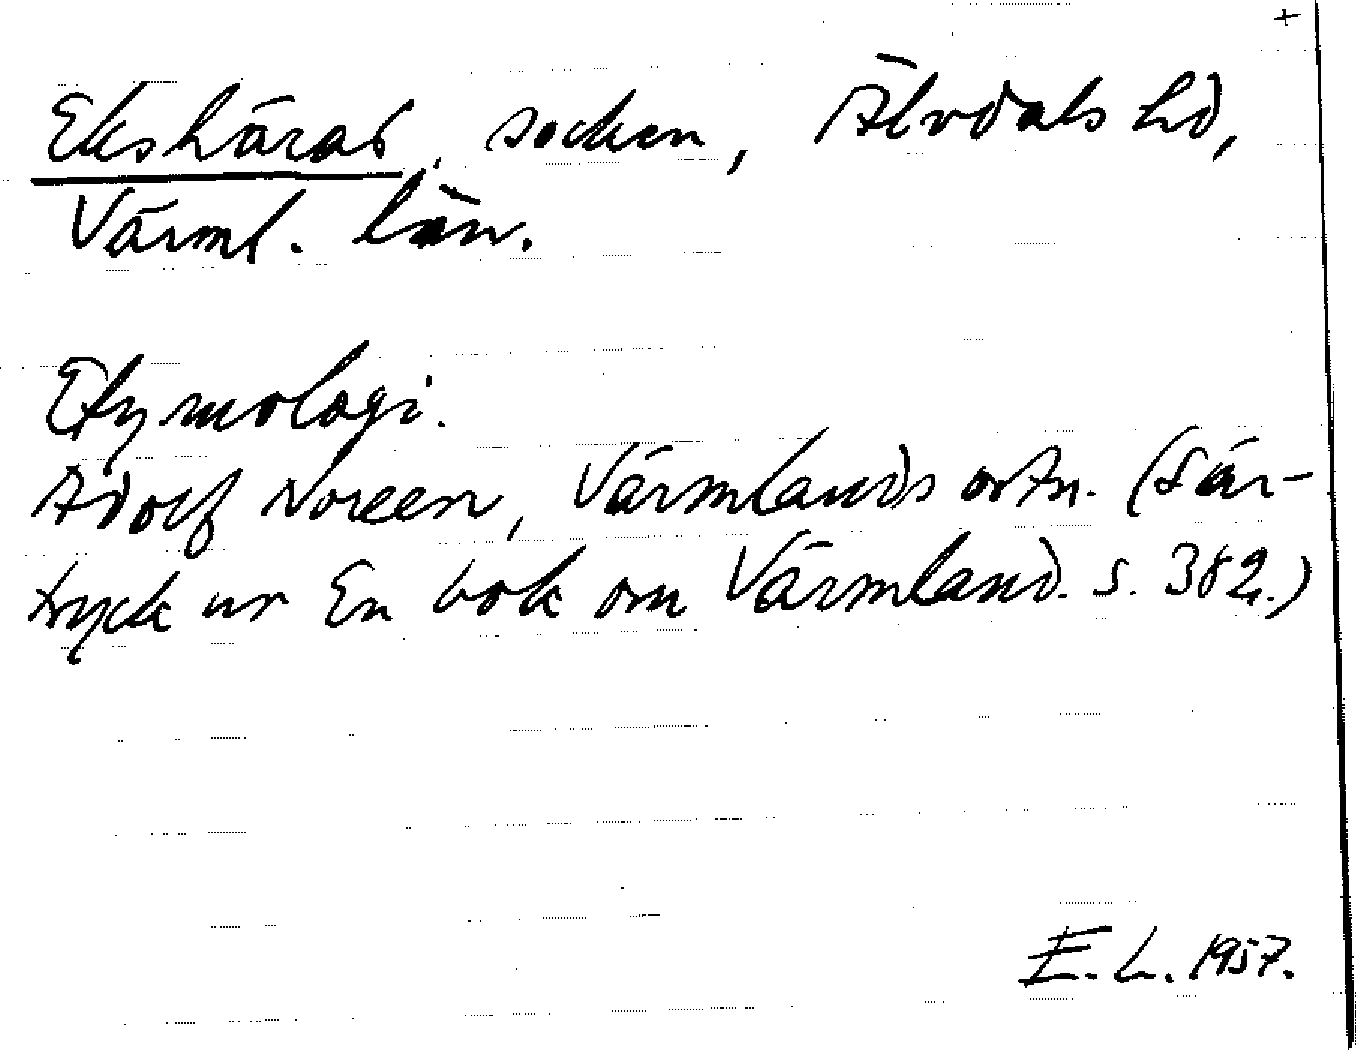 +
Ekshärad, socken, Älvdals hd,
Värml. län.
Etymologi.
Adolf Noreen, Värmlands ortn. (Sär-
tryck ur En bok om Värmland. s. 382.)
E. L. 1957.